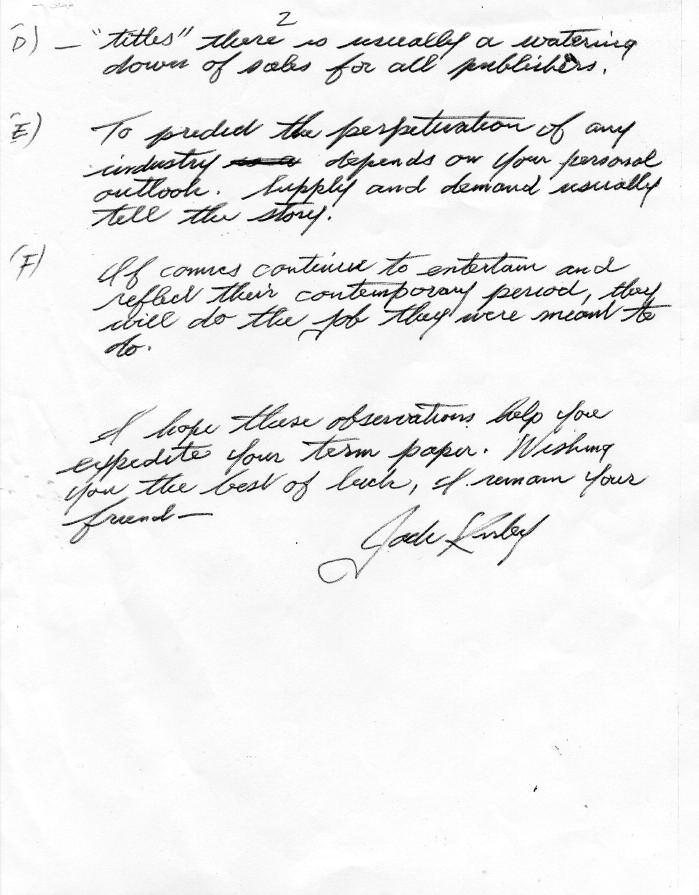 2
D) — "titles" there is usually a watering
down of sales for all publishers.
E) To predict the perpetuation of any
industry depends on your personal
outlook. Supply and demand usually
tell the story.
F) If comics continue to entertain and
reflect their contemporary period, they
will do the job they were meant to
do.
I hope these observations help you
expedite your term paper. Wishing
you the best of luck, I remain your
friend—
Jack Kirby